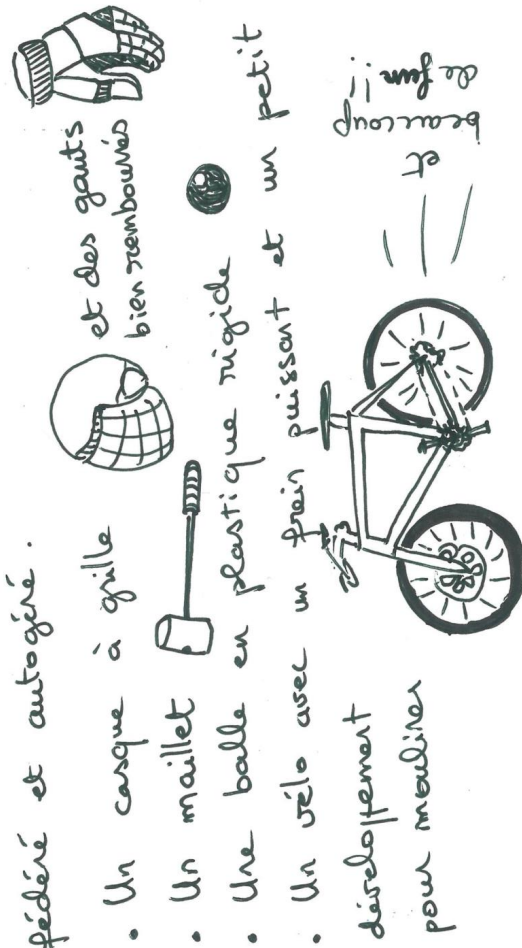 fédéré et autogéré.
• Un casque à grille
et des gants
bien rembourrés
• Un maillet
• Une balle en plastique rigide
• Un vélo avec un frein puissant et un petit
développement
pour mouliner
et
beaucoup
de fun !!